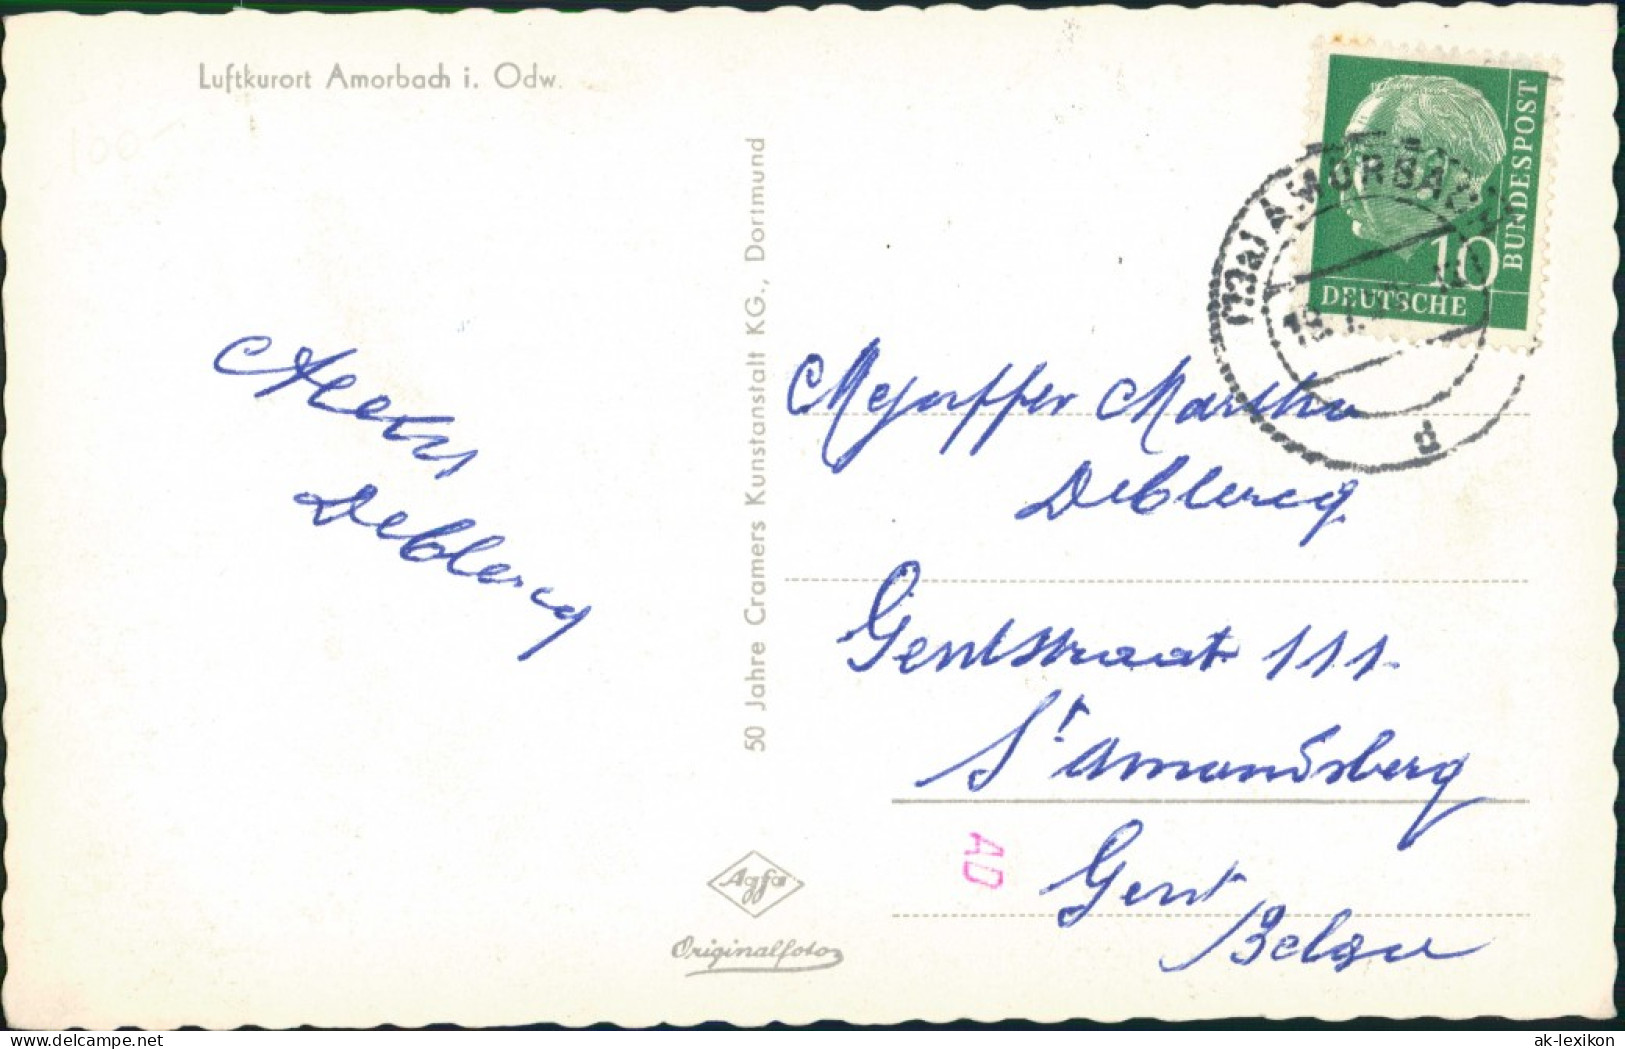 Luftkurort Amorbach i. Odw.
100-
BUNDESPOST
10
DEUTSCHE
(13a) AMORBACH
d
50 Jahre Cramers Kunstanstalt KG., Dortmund
Deblercq
Mejuffer Martha
Deblercq
Gentstraat 111.
St Amandsberg
Gent
AD
Agfa
Originalfoto
ak-lexikon
delcampe.net